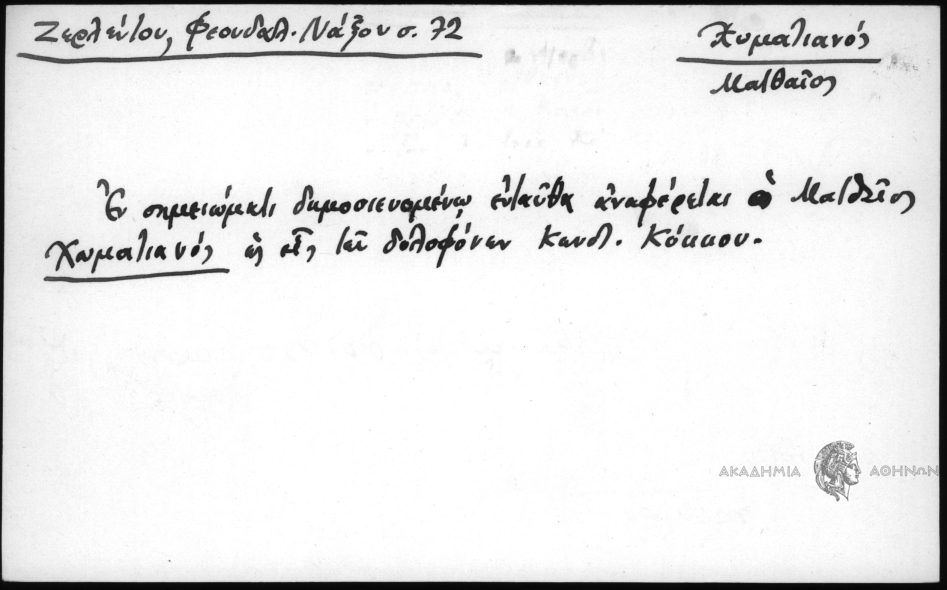 Ζερλέντου, Φεουδαλ. Νάξου σ. 72
Χυματιανός
Ματθαῖος
Ἐν σημειώματι δημοσιευομένῳ ἐνταῦθα ἀναφέρεται ὁ Ματθαῖος
Χωματιανός ὡς εἷς τῶν δολοφόνων Κωνστ. Κόκκου.
ΑΚΑΔΗΜΙΑ ΑΘΗΝΩΝ